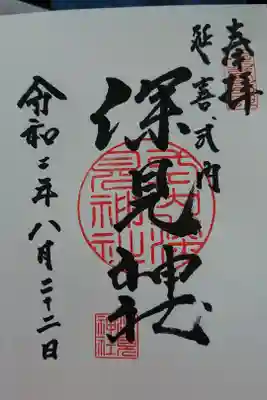 奉拝
延喜式内
深見神社
令和二年八月二十二日